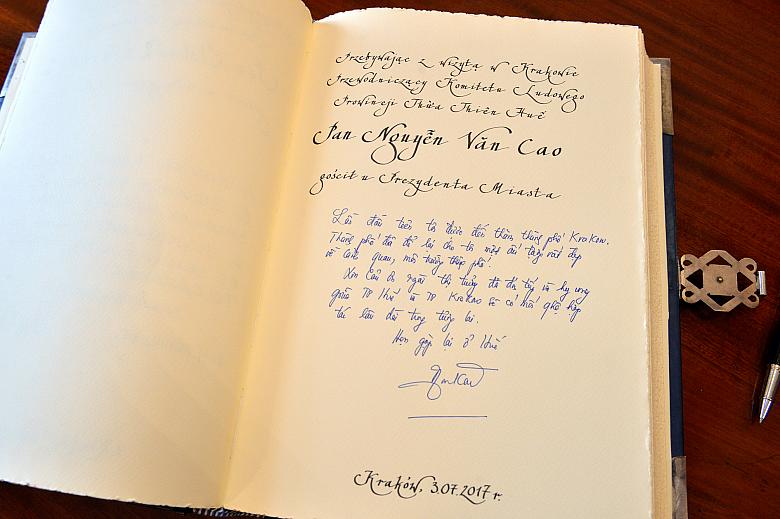 Przebywając z wizytą w Krakowie
Przewodniczący Komitetu Ludowego
Prowincji Thừa Thiên Huế
Pan Nguyễn Văn Cao
gościł u Prezydenta Miasta
Lần đầu tiên tôi được đến thăm thành phố Krakow.
Thành phố đã để lại cho tôi một ấn tượng rất đẹp
về cảnh quan, môi trường thành phố.
Xin cảm ơn ngài thị trưởng đã đón tiếp và hy vọng
giữa TP Huế và TP Krakow sẽ có mối quan hệ hợp
tác lâu dài trong tương lai.
Hẹn gặp lại ở Huế
Kraków, 3.07.2017 r.